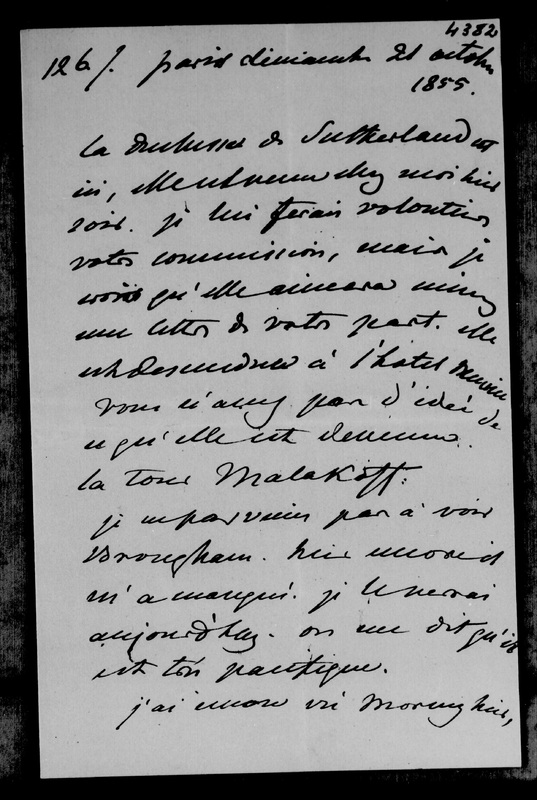 4382
126/. paris dimanche 21 octobre
1855.
la duchesse de Sutherland est
ici, elle est venue chez moi hier
soir. je lui ferais volontiers
votre commission, mais je
crois qu'elle aimera mieux
une lettre de votre part. elle
est descendue à l'hotel
vous n'avez pas d'idée de
ce qu'elle est devenue.
la tour Malakoff.
je ne parviens pas à voir
Brougham. hier encore il
m'a manqué. je le verrai
aujourd'huy. on me dit qu'il
est très pacifique.
j'ai encore vu Morny hier,